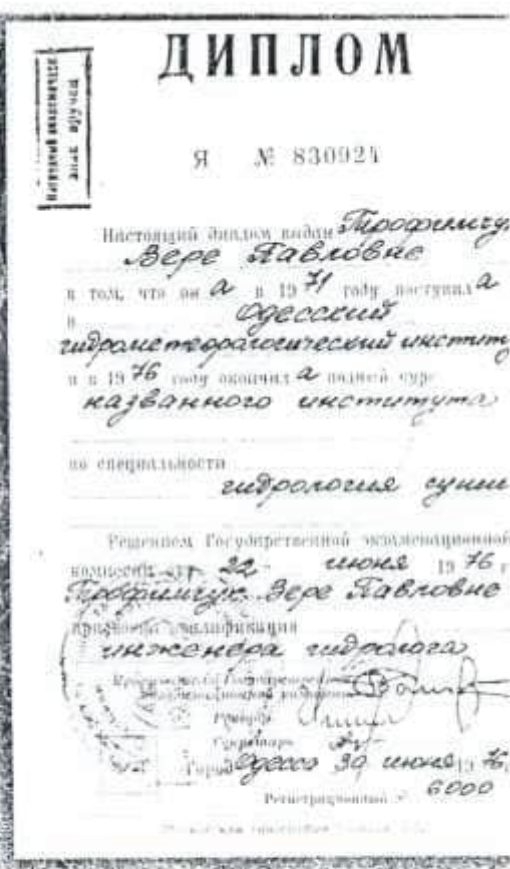 ДИПЛОМ
Я № 830924
Настоящий диплом выдан Трофимчу
Вере Павловне
в том, что он а в 1971 году поступил а
в Одесский
гидрометеорологический институ
и в 1976 году окончил а полный кур
названного института
по специальности
гидрология суши
Решением Государственной экзаменационной
комиссии от 22 июня 1976 г
Трофимчук Вере Павловне
присвоена квалификация
инженера гидролога
Председатель Государственной
экзаменационной комиссии
Ректор
Секретарь
Город Одесса 30 июня 1976 г.
Регистрационный № 6000